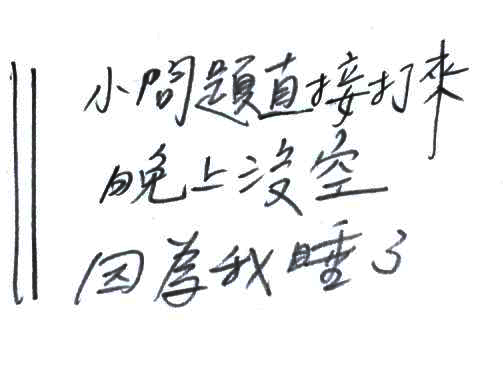 小問題直接打來
晚上沒空
因為我睡了